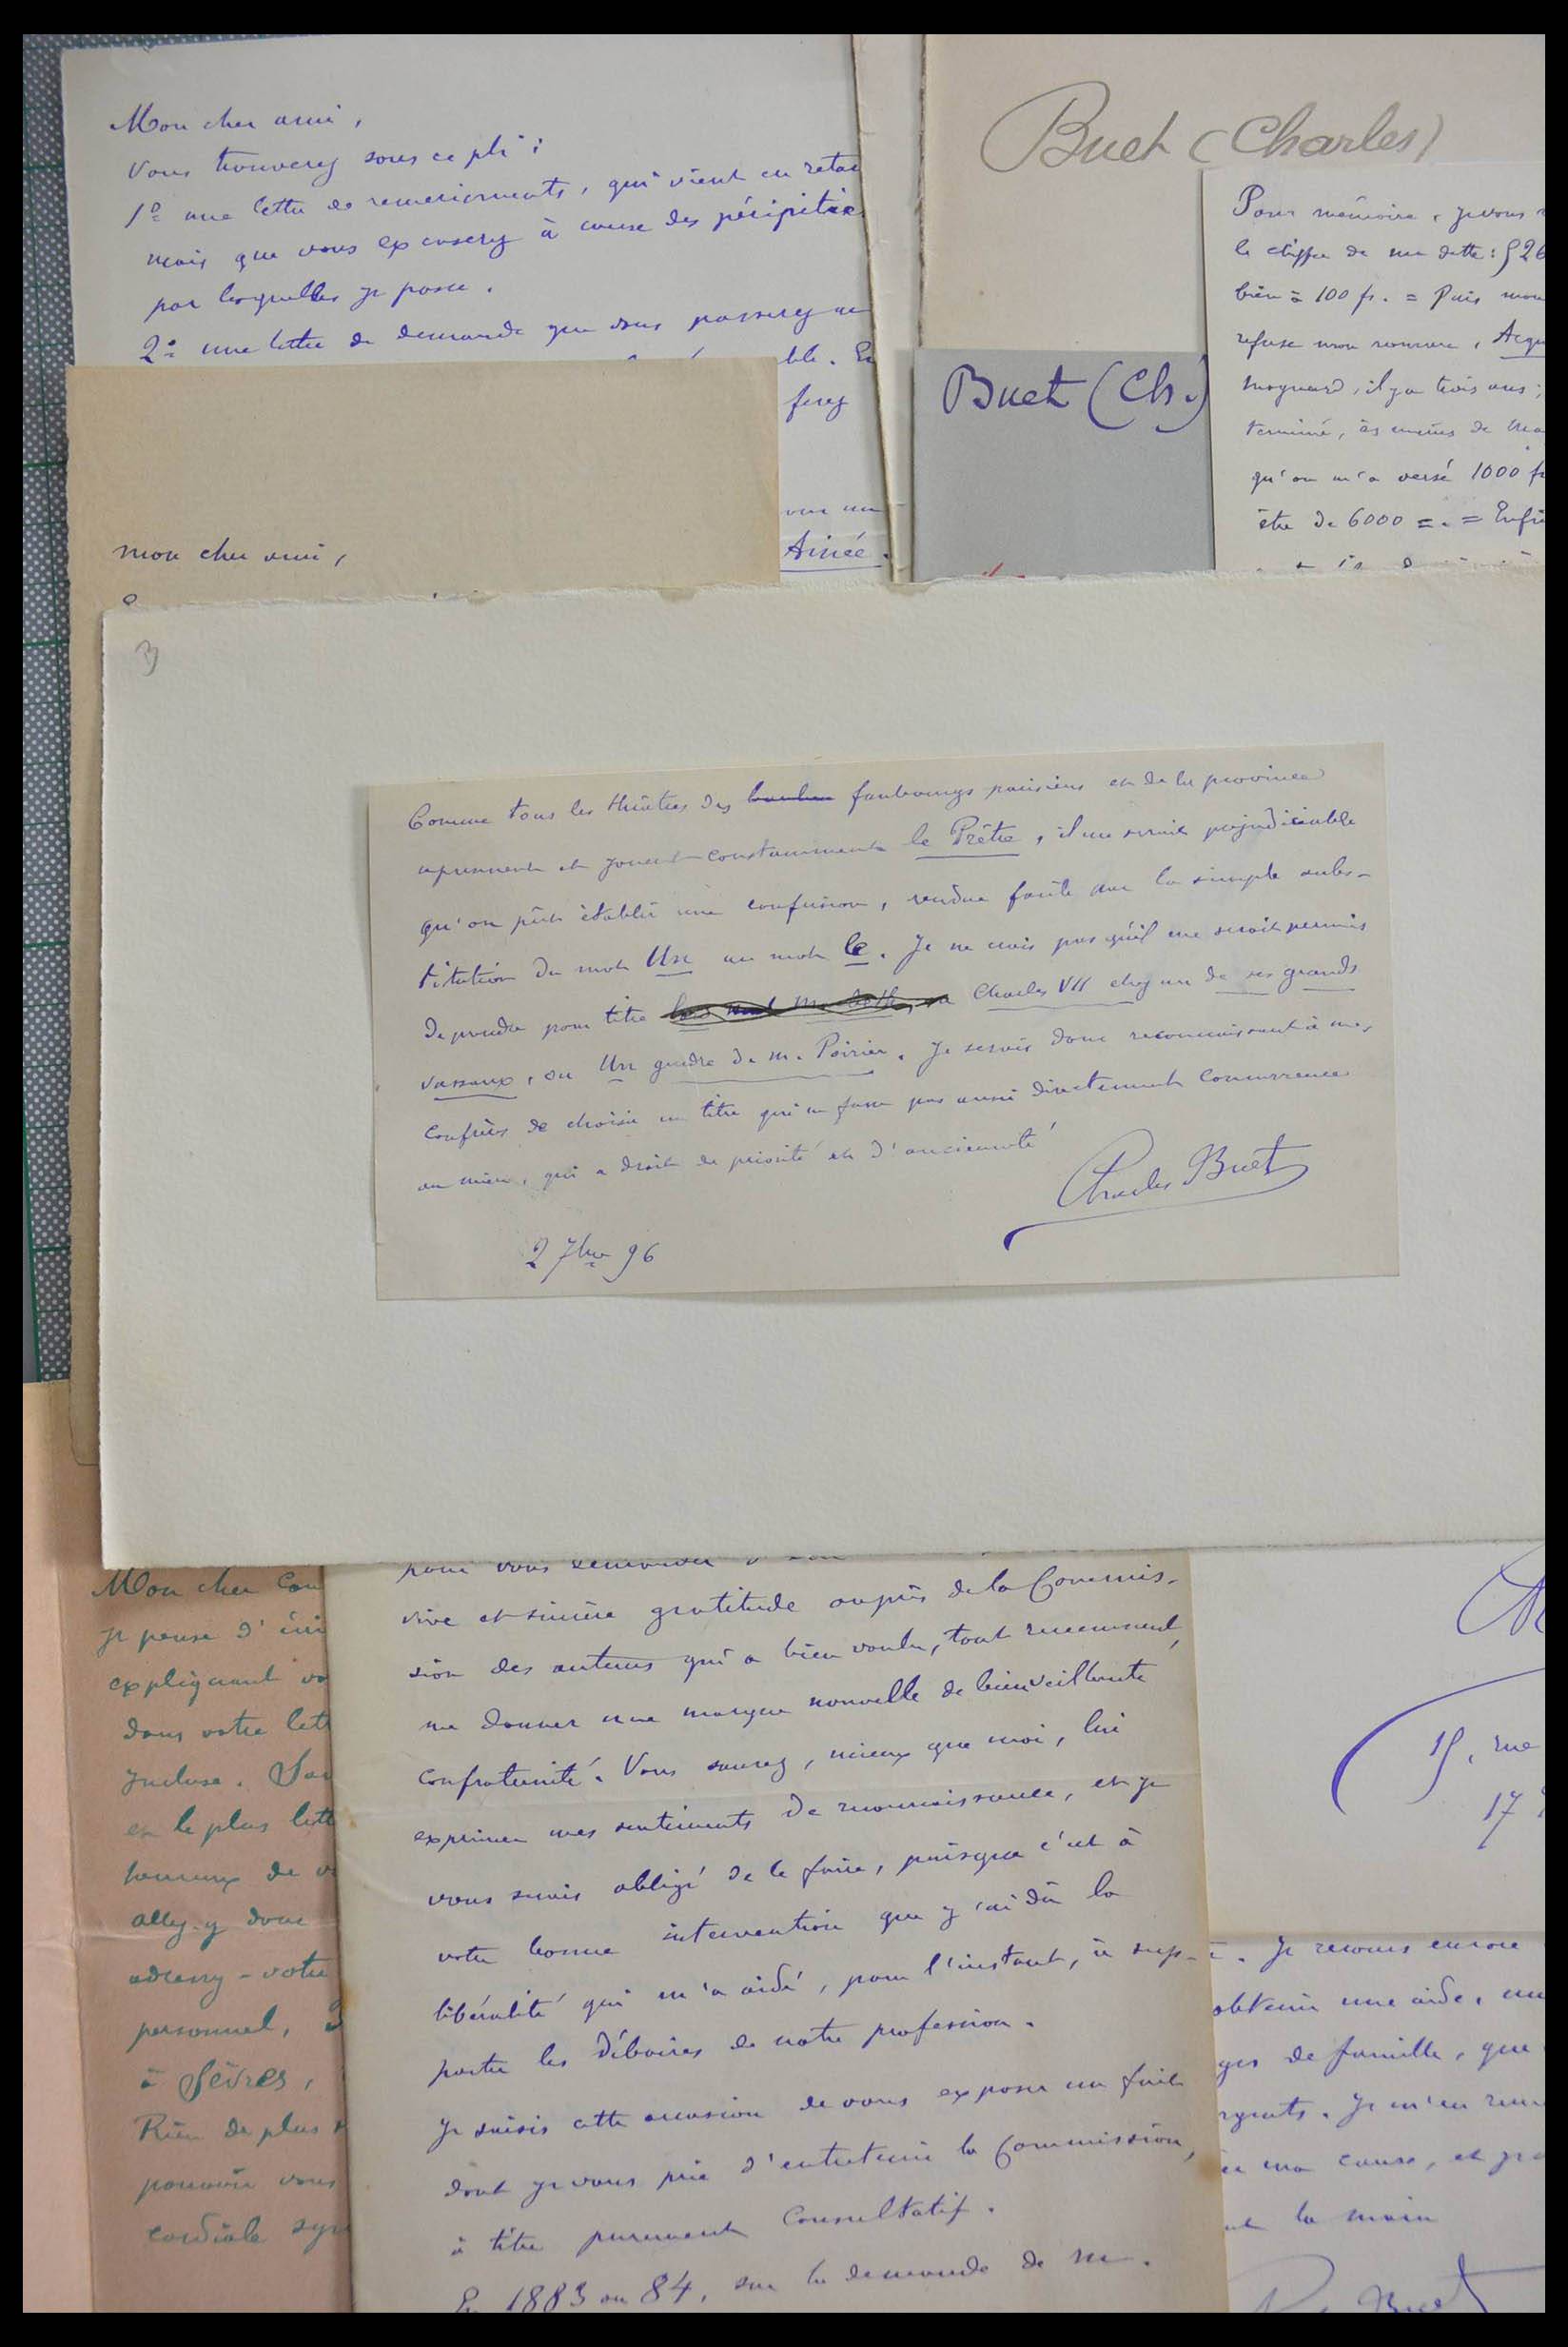 Mon cher ami,
Vous trouverez sous ce pli :
1º une lettre de remerciements, qui vient en retar
mais que vous excuserez à cause des péripéties
par lesquelles je passe.
2º une lettre de demande que vous passerez au
ble. En
ferez
une
Aînée.
Buet (Charles)
Buet (Ch.)
Pour mémoire, je vous
le chiffre de ma dette : 526
bien à 100 fr. = Puis mon
refuse mon romans, Acqu
Moynard, il y a trois ans ;
terminé, ès mains de Ma
qu'on m'a versé 1000 fr
être de 6000 =. = Enfin
mon cher ami,
3
Comme tous les théâtres des faubourgs parisiens et de la province
reprennent et jouent constamment le Prêtre, il me serait préjudiciable
qu'on pût établir une confusion, rendue facile par la simple subs-
titution du mot Un au mot le. Je ne crois pas qu'il me serait permis
de prendre pour titre Charles VII chez un de ses grands
vassaux, ou Un gendre de M. Poirier. Je serais donc reconnaissant à mes
confrères de choisir un titre qui ne fasse pas aussi directement concurrence
au mien, qui a droit de priorité et d'ancienneté
Charles Buet
2 7bre 96
Mon cher Con
je pense d'
expliquant vo
dans votre lett
incluse.
et le plus
de v
allez-y donc
adressez-votre
personnel, 3
à Sèvres,
Rien de plus
pouvoir vous
cordiale sym
pour vous demander
vive et sincère gratitude auprès de la Commis-
sion des auteurs qui a bien voulu, tout récemment,
me donner une marque nouvelle de bienveillante
confraternité. Vous saurez, mieux que moi, lui
exprimer mes sentiments de reconnaissance, et je
vous serais obligé de le faire, puisque c'est à
votre bonne intervention que j'ai dû la
libéralité qui m'a aidé, pour l'instant, à sup-
porter les déboires de notre profession.
Je saisis cette occasion de vous exposer un fait
dont je vous prie d'entretenir la Commission,
à titre purement consultatif.
En 1883 ou 84, sur la demande de M.
15, rue
17
. Je recours encore
obtenir une aide, un
ges de famille, que
rgents. Je m'en rem
ma cause, et je
la main
Buet